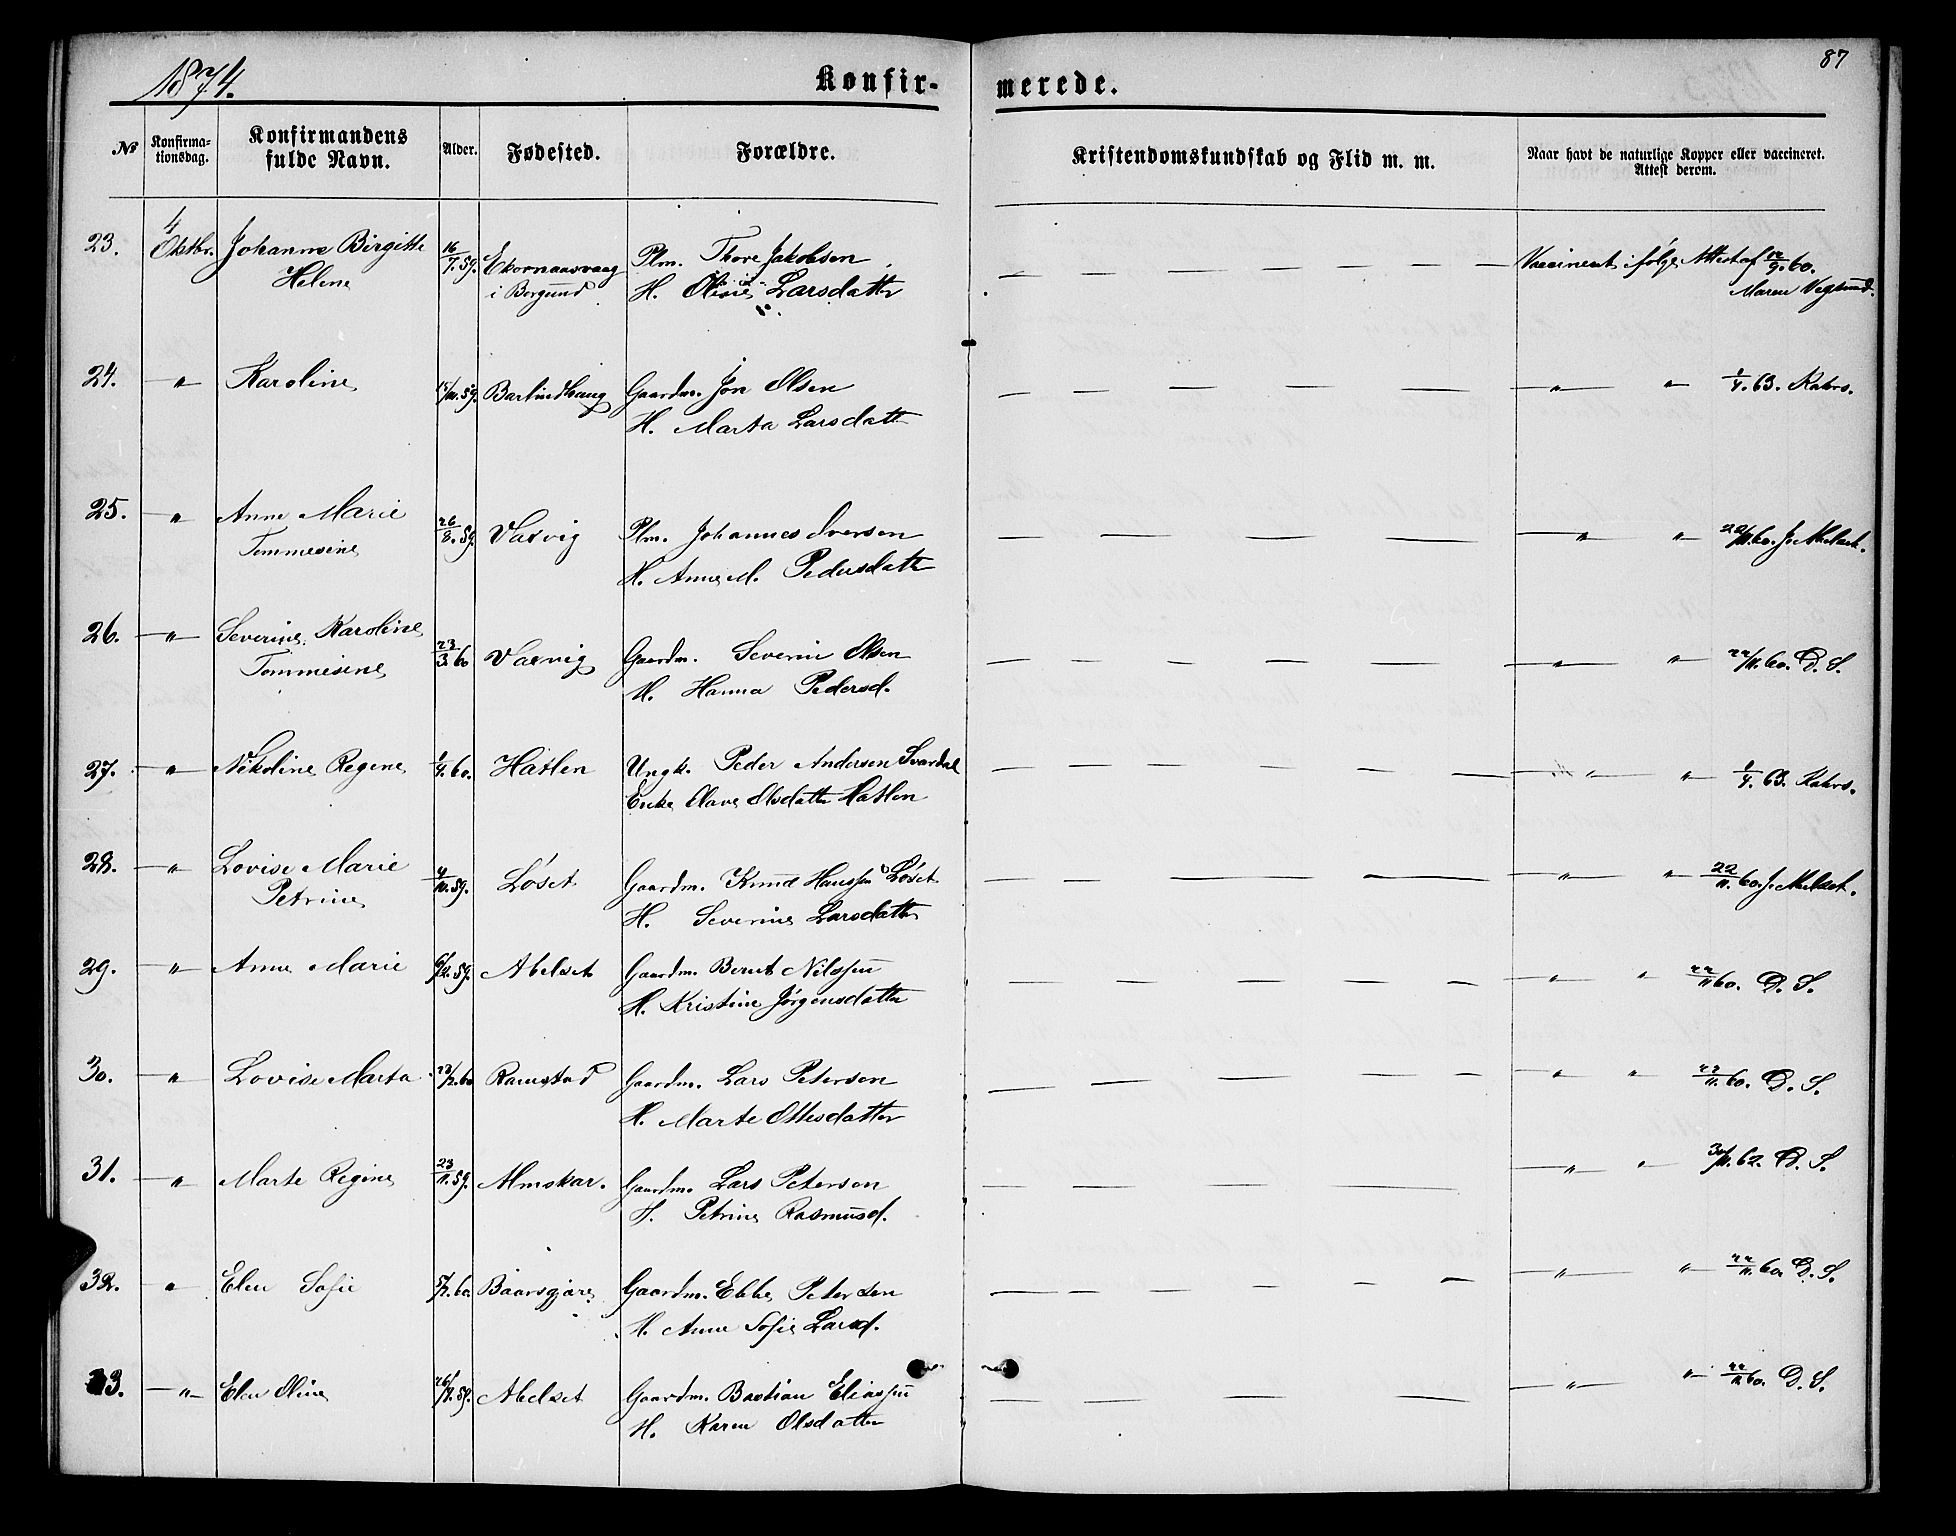 87
1874.
Konfir-
merede.
No
Konfirma-
tionsdag.
Konfirmandens
fulde Navn.
Alder.
Fødested.
Forældre.
Kristendomskundskab og Flid m. m.
Naar havt de naturlige Kopper eller vaccineret.
Attest derom.
23. 4 Oktbr. Johanne Birgitte 16/7.59. Ekornaasvaag Plm. Thore Jakobsen — — — — — — — Vaccineret ifølge Attest af 12/9.60.
Helene i Borgund H. Olivie Larsdatter Maren Vegsund.
24. — " — Karoline 15/11.59. Barlindhaug Gaardm. Jon Olsen — — — — — — " — " — 1/4.63. Kahrs.
H. Marta Larsdatt
25. — " — Anne Marie 26/8.59. Vasvig Plm. Johannes Iversen — — — — — — " — " — 22/11.60. J. Melset.
Tommesine H. Anne M. Pedersdatt
26. — " — Severine Karoline 23/3.60 Vasvig Gaardm. Severin Olsen — — — — — — " — " — 22/11.60. D. S.
Tommesine H. Hanna Pedersd.
27. — " — Nikoline Regine 1/4.60. Hatlen Ungk. Peder Andersen Svardal — — — — — — " — " — 1/4.63. Kahrs.
Enke Olave Olsdatter Hatlen
28. — " — Lovise Marie 4/10.59. Løset Gaardm. Knud Hanssen Løset — — — — — — " — " — 22/11.60. J. Melset.
Petrine H. Severine Larsdatter
29. — " — Anne Marie 6/12.59. Abelset Gaardm. Bernt Nilssen — — — — — — " — " — 22/11.60. D. S.
H. Kristine Jørgensdatter
30. — " — Lovise Marta 23/2.60 Ramstad Gaardm. Lars Petersen — — — — — — " — " — 22/11.60. D. S.
H. Marte Ottesdatter
31. — " — Marte Regine 23/11.59. Almskar. Gaardm. Lars Petersen — — — — — — " — " — 30/11.62. D. S.
H. Petrine Rasmusd.
32. " — Elen Sofie 5/2.60. Baarsgjære Gaardm. Ebbe Petersen — — — — — — " — " — 22/11.60 D. S.
H. Anne Sofie Larsd.
33. — " — Elen Oline 26/12.59. Abelset Gaardm. Bastian Eliassen — — — — — — " — " — 22/11.60. D. S.
H. Karen Olsdatter